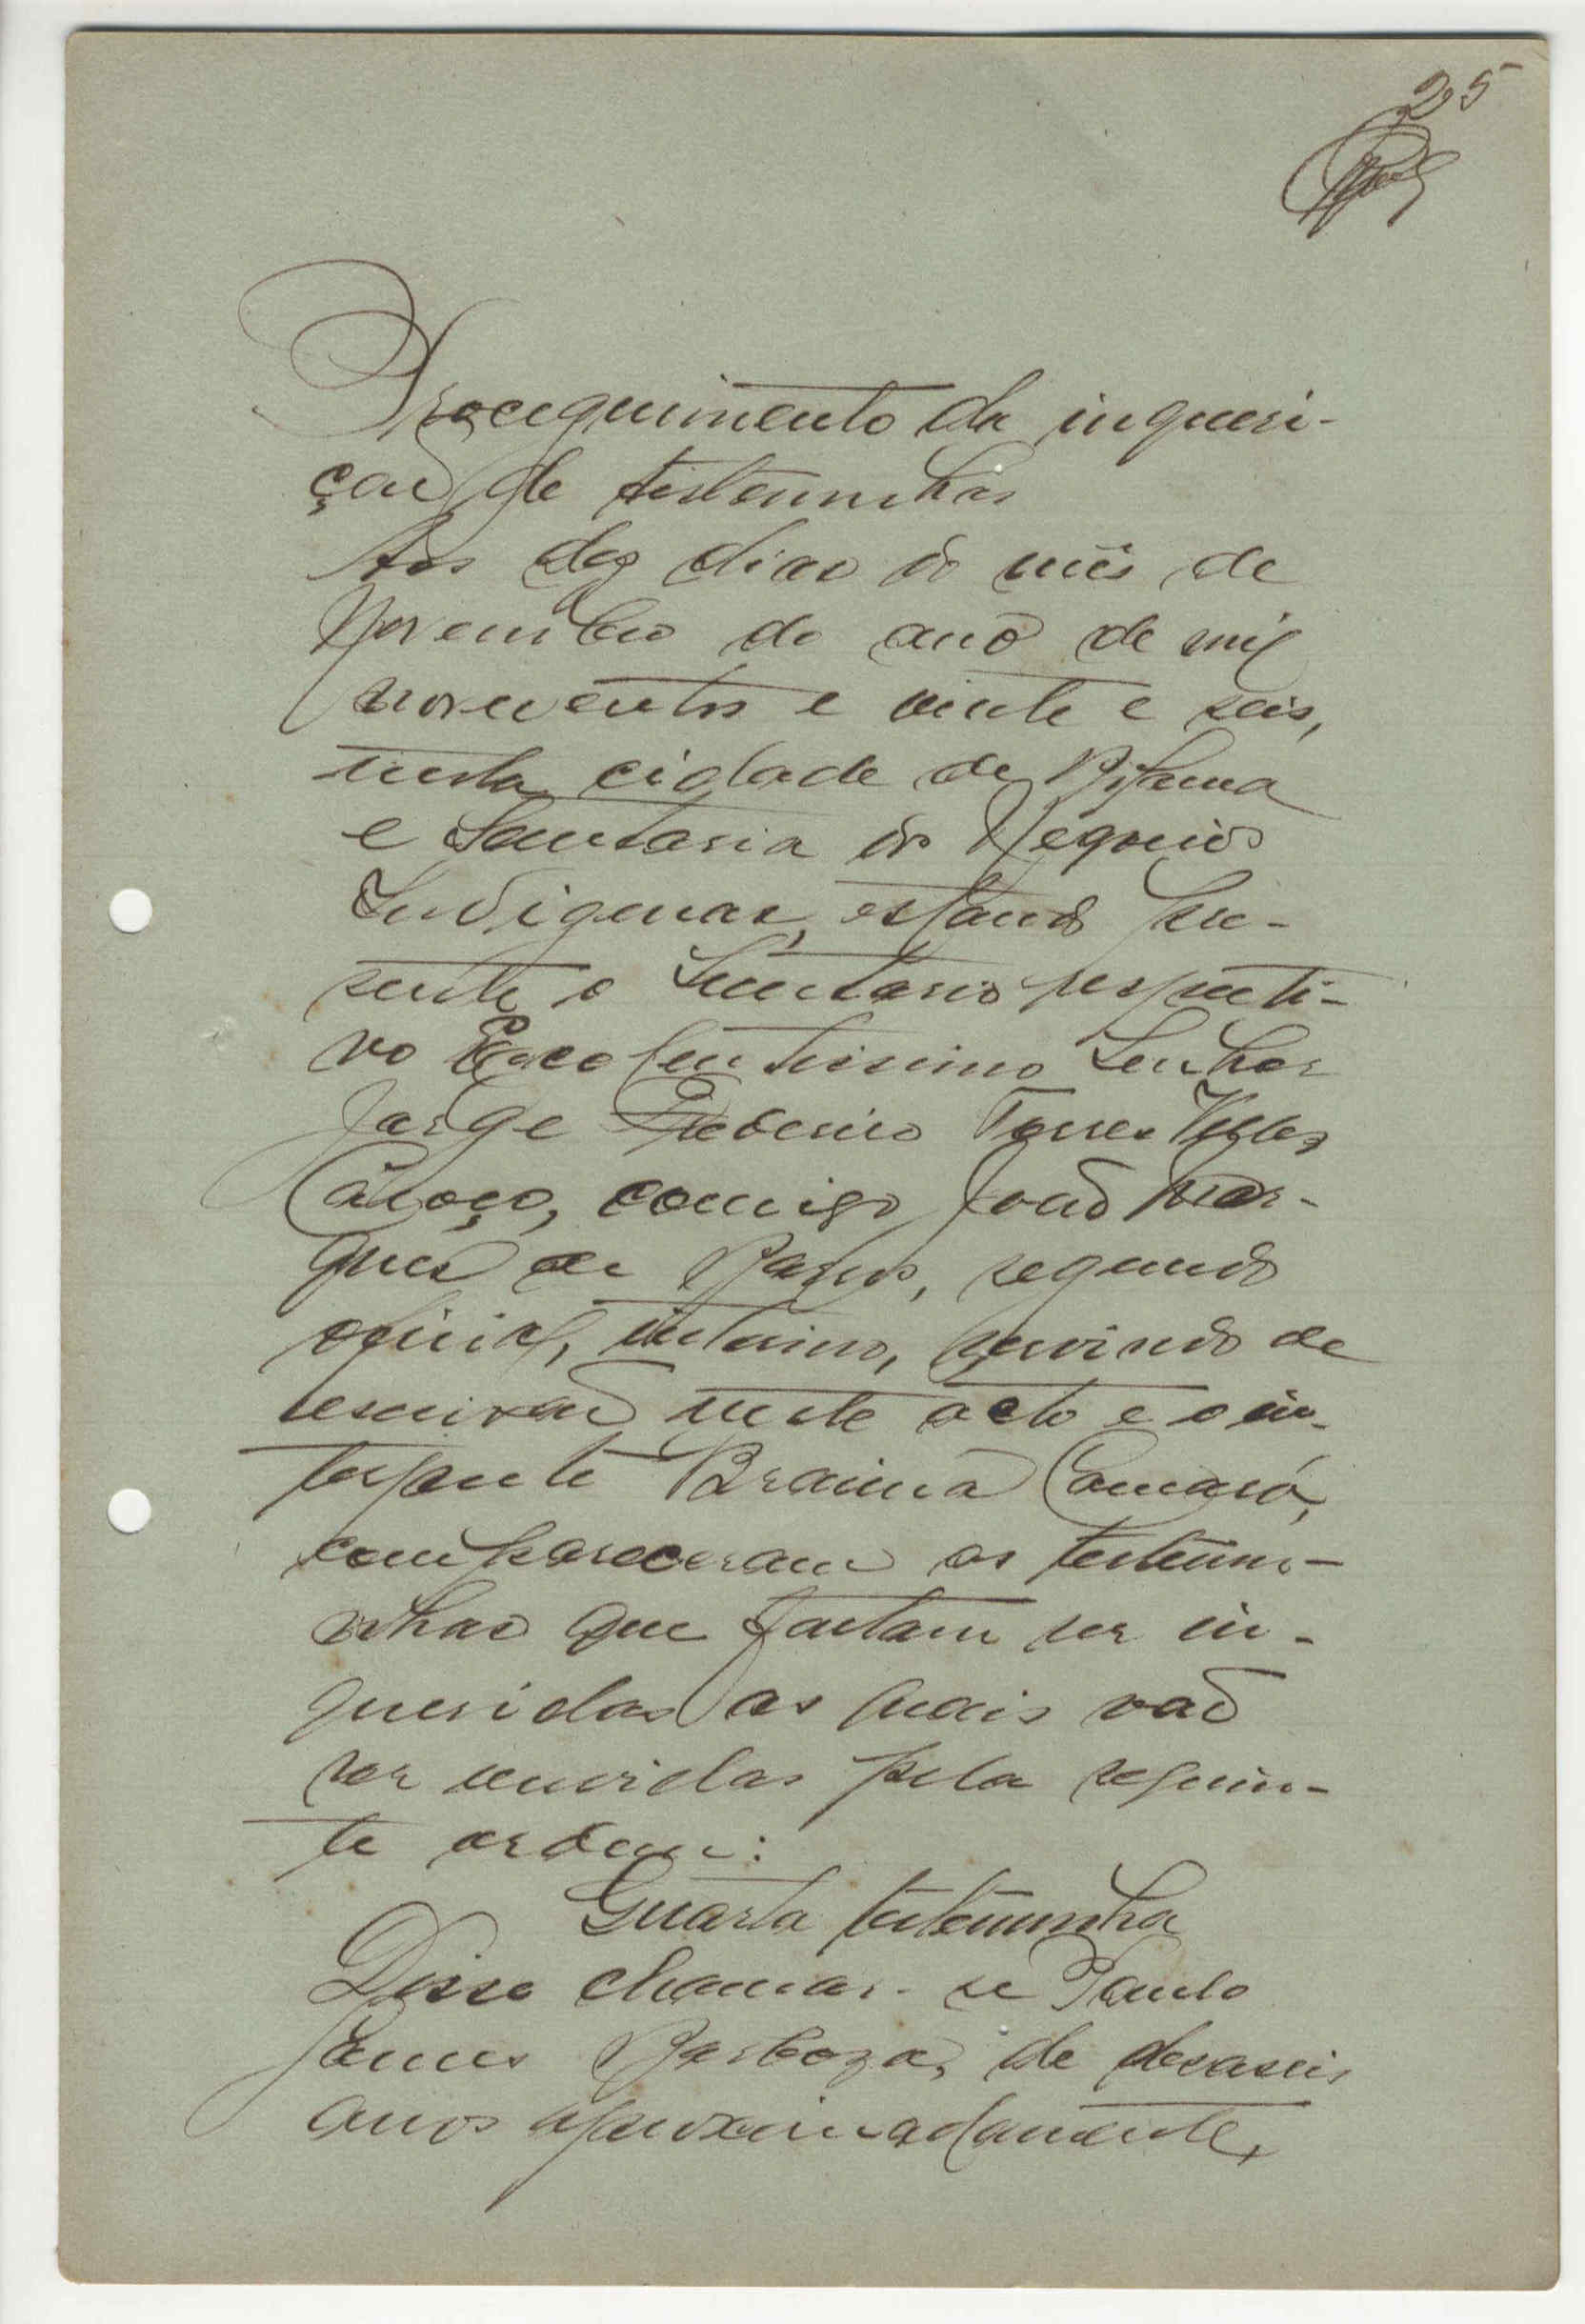 25
Proceguimento da inqueri-
ção de testemunhas
Aos dez dias do mês de
Novembro do ano de mil
novecentos e vinte e seis,
nesta cidade de Bolama
e Secretaria dos Negocios
Indigenas, estando pre-
sente o Secretario respecti-
vo Excelentissimo Senhor
Jorge Frederico Torres Velez
Caroço, comigo João Mar-
ques de Barros, segundo
oficial, interino, servindo de
escrivão neste acto e o in-
terprete Braima Camará,
compareceram as testemu-
nhas que faltam ser in-
queridas as quais vão
ser ouvidas pela seguin-
te ordem:
Quarta testemunha
Disse chamar-se Paulo
James Barboza, de dezaseis
anos aproximadamente,